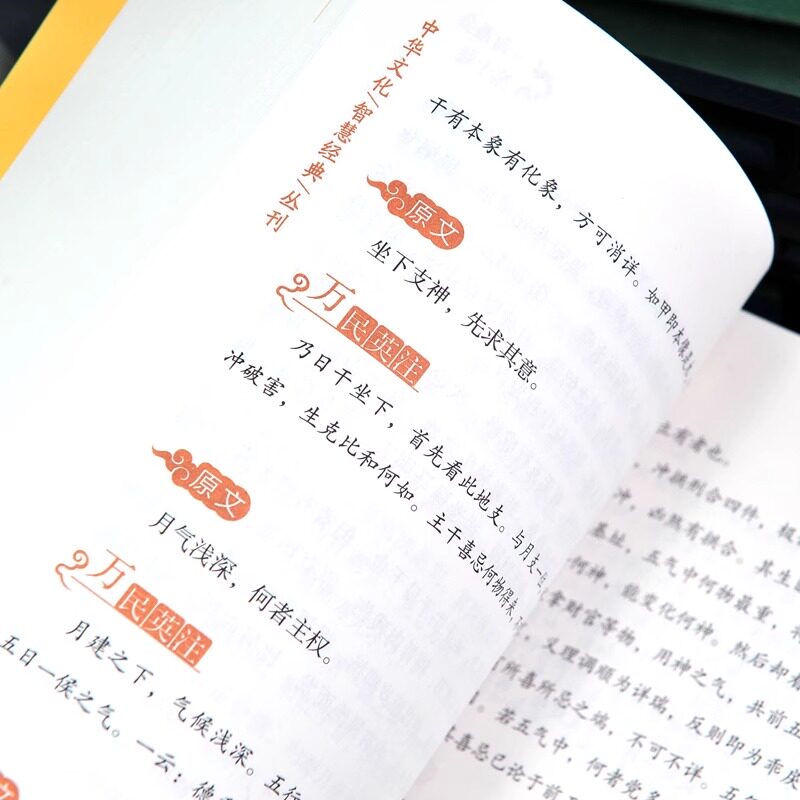 中华文化/智慧经典/丛刊
干有本象有化象，方可消详。如甲即本
原文
坐下支神，先求其意。
万民英注
乃日干坐下，首先看此地支。与月支一
冲破害，生克比和何如。主干喜忌何物得来，
原文
月气浅深，何者主权。
万民英注
月建之下，气候浅深。五行
五日一候之气。一云：德
文
主有者也。
，冲损刑合四件，
冲，凶煞有拱合。其生
基址，五气中何物最重，
何神，能变化何神。然后却
拿财官等物，用神之气，共前五
，义理调顺为详瑞，反则即为乖
所喜所忌之病，不可不详。五
。若五气中，何者党多
喜忌已论于前